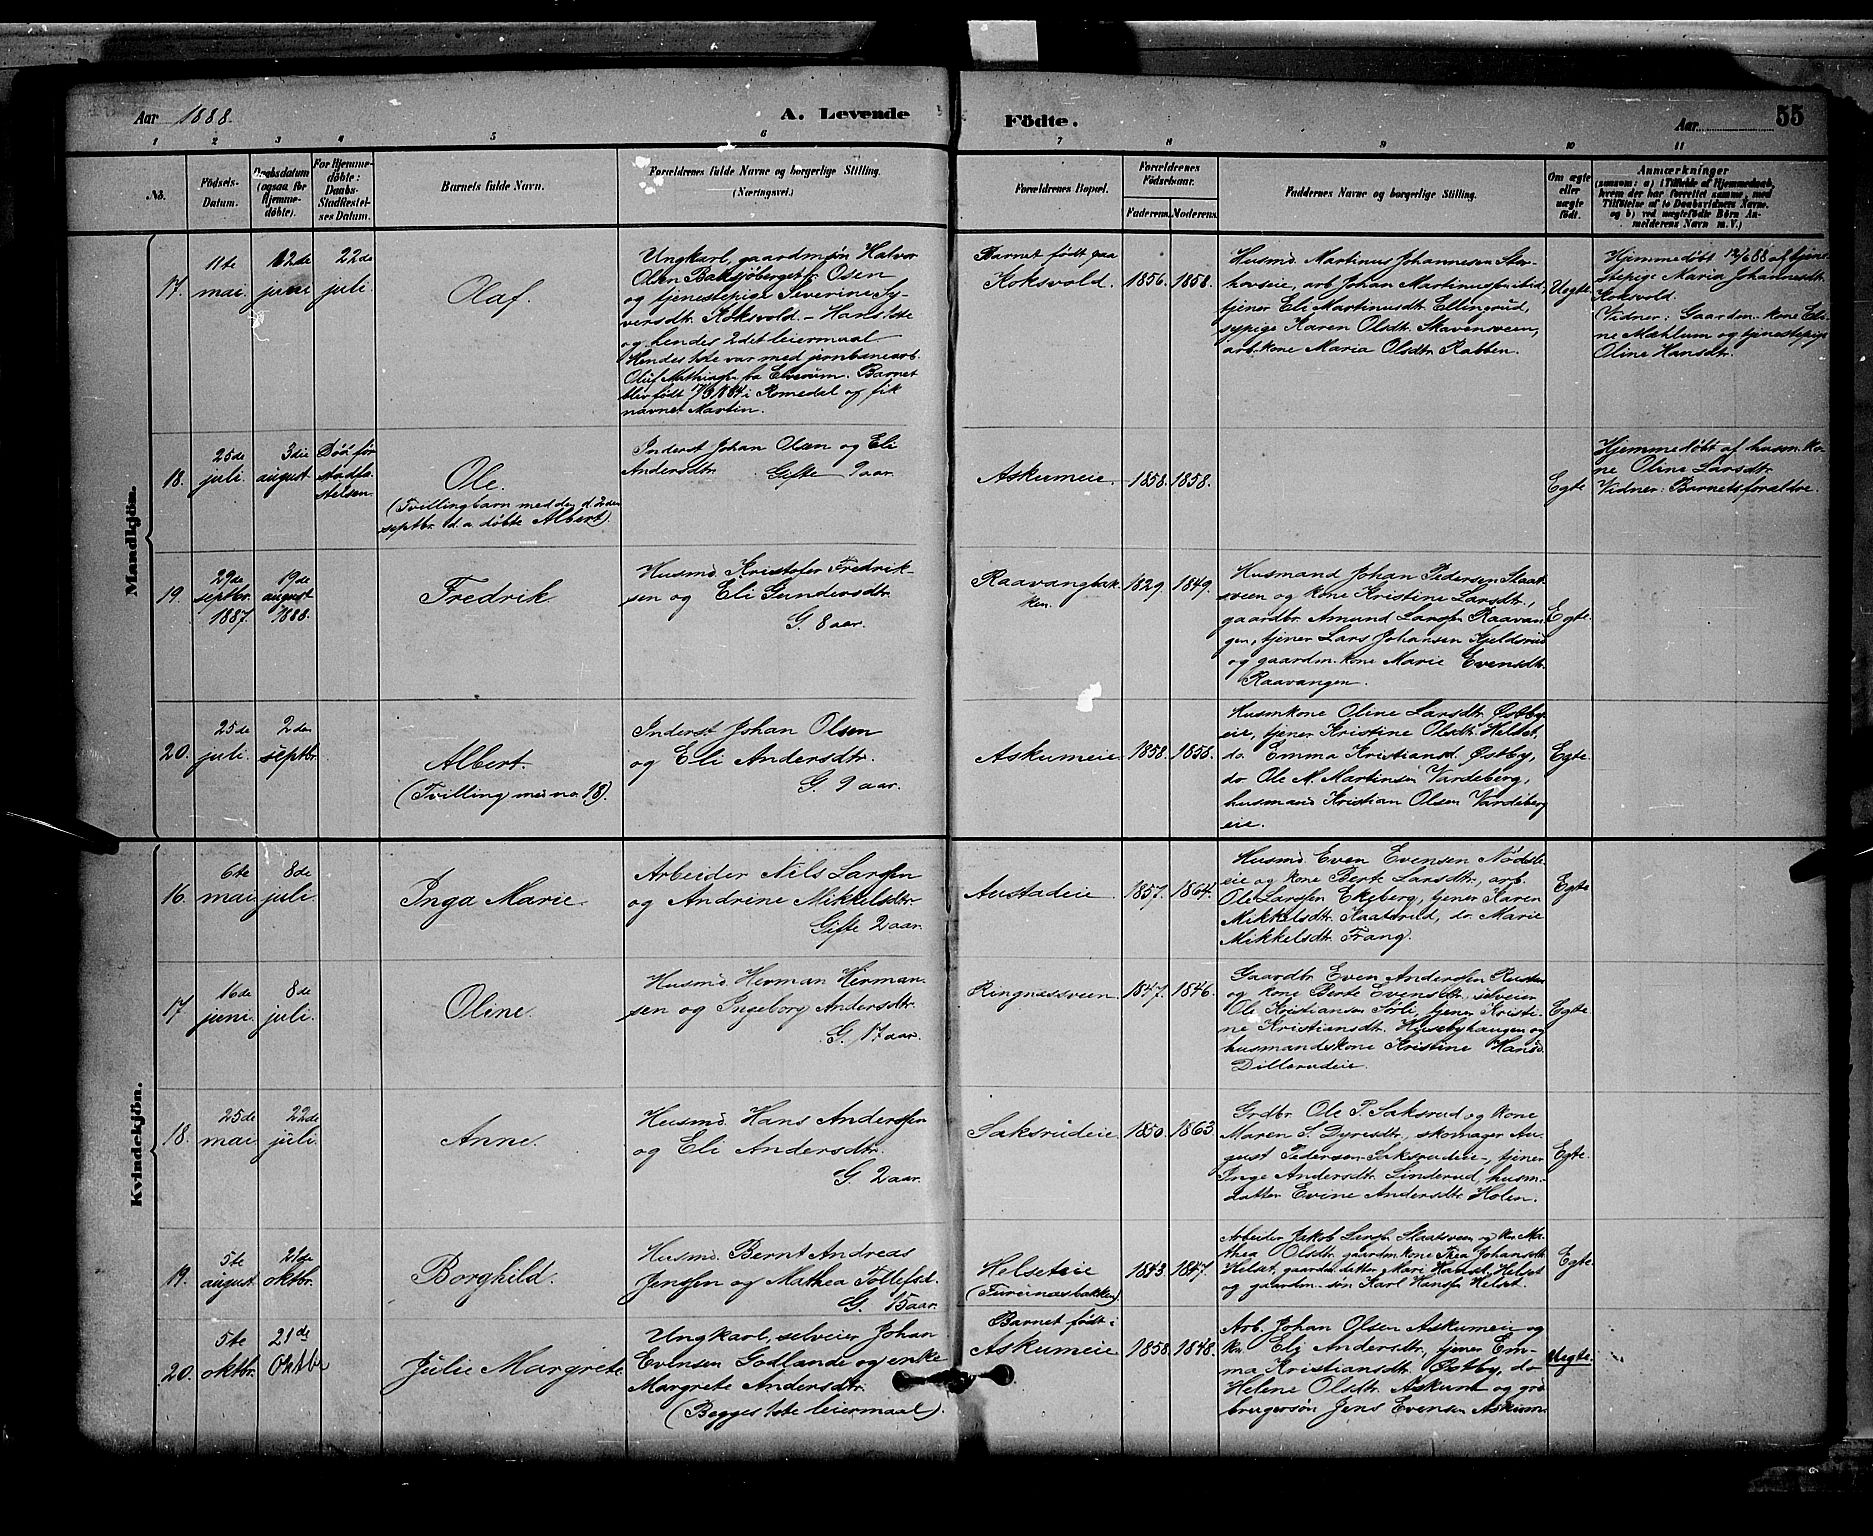 Aar 1888.
A. Levende
Födte.
Aar
55
1 2 3 4 5 6 7 8 9 10 11
No.
Födsels-
Datum.
Daabsdatum
(ogsaa for
Hjemme-
döbte).
For Hjemme-
döbte:
Daabs-
Stadfæstel-
ses Datum.
Barnets fulde Navn.
Forældrenes fulde Navne og borgerlige Stilling.
(Næringsvei.)
Forældrenes Bopæl.
Forældrenes
Födselsaar.
Faderens. Moderens.
Faddernes Navne og borgerlige Stilling.
Om ægte
eller
uægte
födt.
Anmærkninger
(saasom: a) i Tilfælde af Hjemmedaab,
hvem der har forrettet samme, med
Tilföielse af to Daabsvidners Navne,
og b) ved uægtefödte Börn An-
melderens Navn m.V.)
Mandkjön.
17.
11te
mai.
12de
juni
22de
juli
Olaf.
Ungkarl, gaardmsøn Halvor
Olsen Baksjøberget fr. Osen
og tjenestepige Severine Sy-
versdtr. Koksvold. – Hans 1ste
og hendes 2det leiermaal
Hendes 1ste var med jernbanearb.
Oluf Mathiass. fra Elverum. Barnet
blev født 17/3 1884 i Romedal og fik
navnet Martin.
Barnet født paa
Koksvold.
1856. 1858.
Husmd. Martinus Johannesen Sta-
arb. Johan Martinus
tjener Eli Martinusdt. Ellingrud,
sypige Karen Olsdt. Stavensveen,
arb.kone Maria Olsdt. Rabben.
Uegte
Hjemmedøbt 12/6 88 af tjene-
stepige Maria Johannesdt.
Koksvold.
(Vidner: Gaardm.kone Eli-
ne Mahlum og tjenestepige
Oline Hansdtr.
18.
25de
juli.
3die
august
Død før
stadfæ-
stelsen.
Ole.
(Tvillingbarn med den d. 2den
septbr. d.a. døbte Albert).
Inderst Johan Olsen og Eli
Andersdtr.
Gifte 9 aar.
Askumeie.
1858. 1858.
Egte
Hjemmedøbt af husm.ko-
ne Oline Larsdtr.
Vidner: Barnets foraldre.
19.
29de
septbr.
1887.
19de
august
1888.
Fredrik
Husmd. Kristofer Fredrik-
sen og Eli Gundersdtr.
G. 8 aar.
Raavangbak-
ken.
1829. 1849.
Husmand Johan Pedersen Slaat-
sveen og kone Kristine Larsdtr.,
gaardbr. Amund Larssen Raavan-
gen, tjener Lars Johansen Kjeldsrud
og gaardm.kone Marie Evensdtr.
Raavangen.
Egte.
20.
25de
juli.
2den
septbr.
Albert.
(Tvilling med no. 18).
Inderst Johan Olsen
og Eli Andersdtr.
G. 9 aar.
Askumeie
1858. 1858.
Husmkone Oline Larsdtr. Østby-
eie, tjener Kristine Olsdtr. Helset,
do. Emma Kristiansd. Østby,
do Ole M. Martinsen Vardeberg,
husmand Kristian Olsen Vardeberg
eie.
Egte.
Kvindekjön.
16
6te
mai
8de
juli.
Inga Marie.
Arbeider Nils Larssen
og Andrine Mikkelsdtr.
Gifte 2 aar.
Austadeie.
1857. 1864.
Husmd. Even Evensen Nødsle-
eie og kone Berte Larsdtr., arb.
Ole Larssen Ekeberg, tjener Karen
Mikkelsdtr. Kaatorud, do. Marie
Mikkelsdtr. Frang.
Egte
17
16de
juni.
8de
juli.
Oline.
Husmd. Herman Herman-
sen og Ingeborg Andersdtr.
G. 17 aar.
Ringnessveen
1847. 1846.
Gaardbr. Even Anderssen Rusten
og kone Berte Evensdtr., selveier
Ole Kristiansen Sørli, tjener Kristi-
ne Kristiansdtr. Husebyhaugen og
husmandskone Kristine Hansd.
Dillerudeie.
Egte
18.
25de
mai
22de
juli
Anne.
Husmd. Hans Anderssen
og Eli Andersdtr.
G 2 aar.
Saksrudeie.
1850. 1863
Grdbr Ole P. Saksrud og kone
Maren S. Dyresdtr., skomager Au-
gust Pedersen Saksrudeie, tjener
Inge Andersdtr. Linderud, husm-
datter Evine Andersdtr. Holen.
Egte.
19.
5te
august.
21de
oktbr.
Borghild.
Husmd. Bernt Andreas
Jenssen og Mathea Tollefsd.
G. 15 aar.
Helseteie
(Furernæsbakken)
1843. 1847.
Arbeider Jakob Larsen Slaatsveen og kone Ma-
thea Olsdtr. gaardm.kone Thea Johansdtr.
Helset, gaardm.datter Mari Hansdt. Helset
og gaardm. søn Karl Hansen Helset.
Egte.
20.
5te
oktbr.
21de
Oktbr
Julie Margrete
Ungkarl, selveier Johan
Evensen Godlande og enke
Margrete Andersdtr.
(Begges 1ste leiermaal).
Barnet født i
Askumeie
1858. 1848.
Arb. Johan Olsen Askumeie og
kn. Eli Andersdtr., tjener Em-
ma Kristiansdtr. Østby, do
Helene Olsdtr. Askum og grd-
brugersøn Jens Evensen Askum.
Uegte.